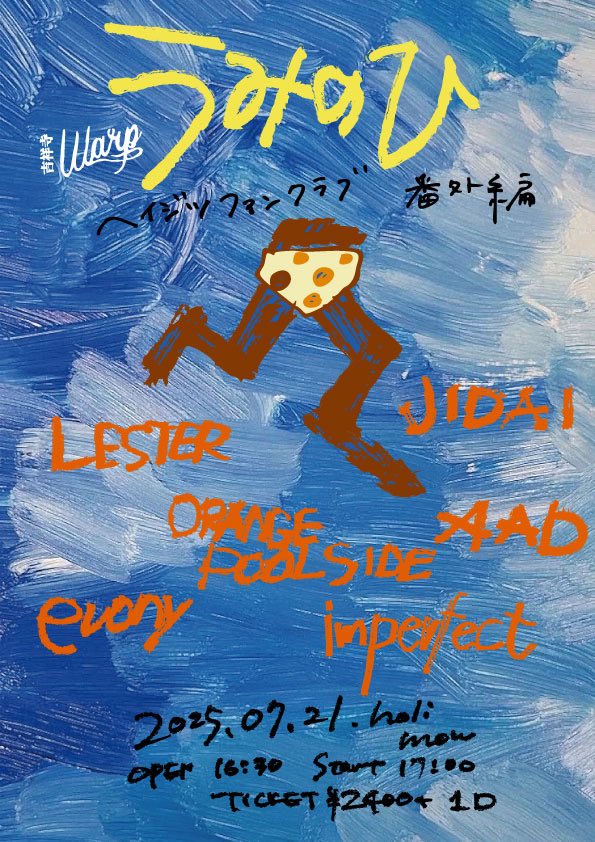 うみのひ
吉祥寺 Warp
ヘイジツファンクラブ 番外編
LESTER
JIDAI
ORANGE
POOLSIDE
AAD
evony
imperfect
2025.07.21.holi
mon
OPEN 16:30 Start 17:00
TICKET ¥2400+ 1D